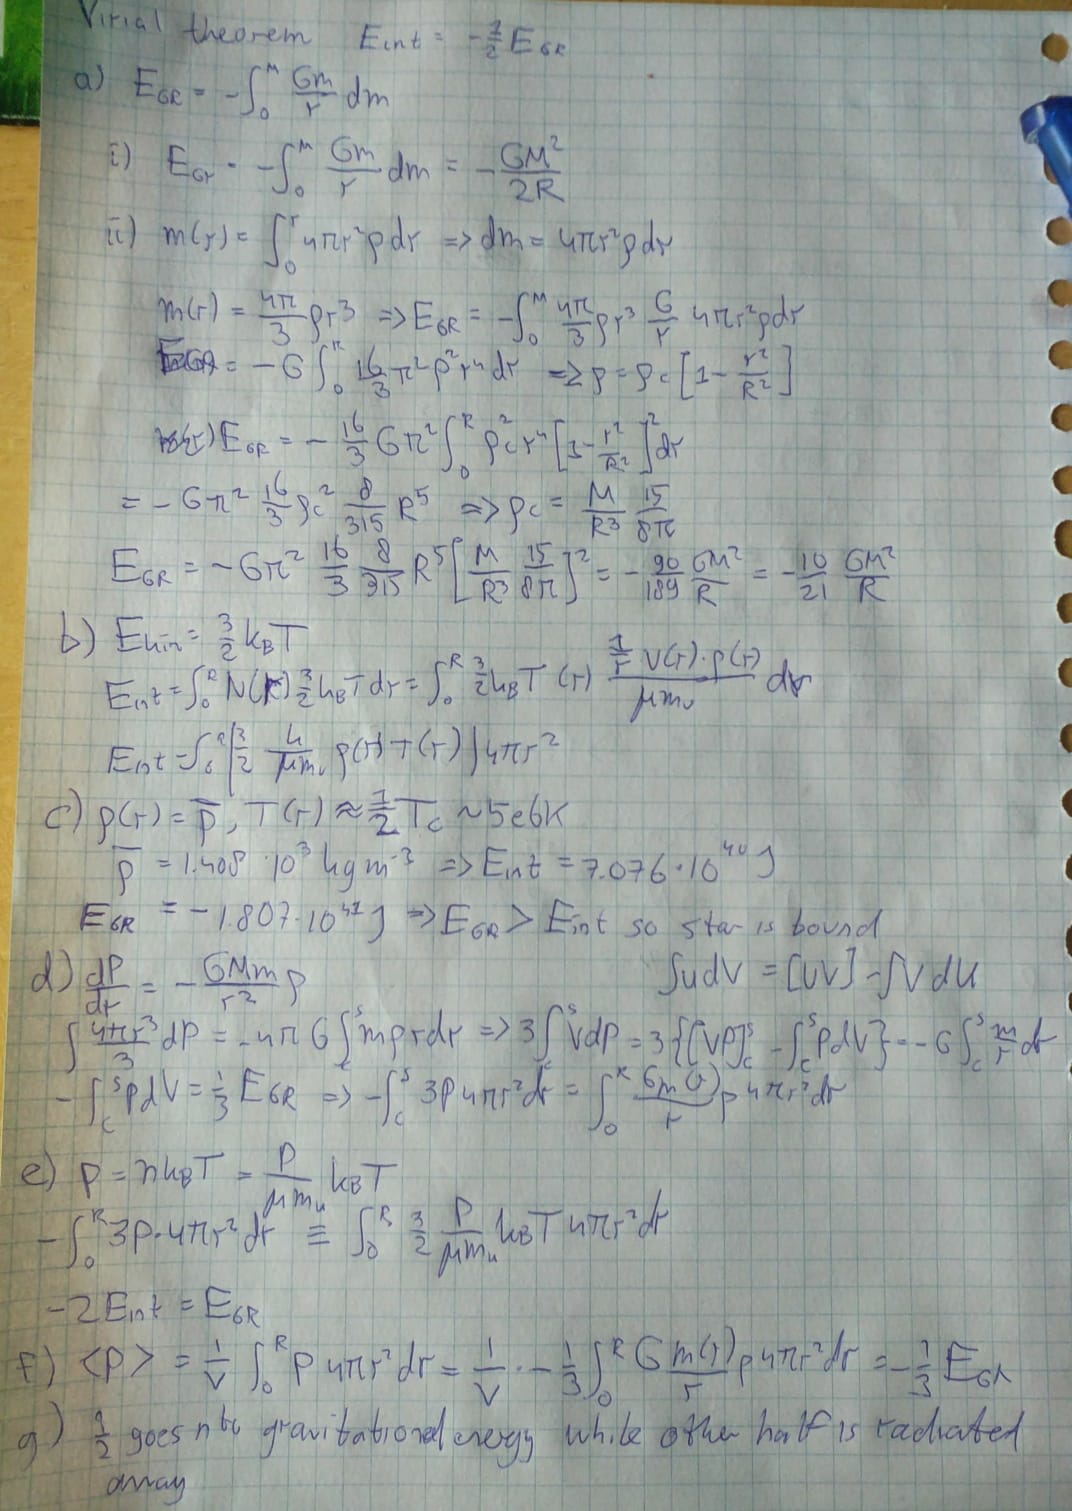 Virial theorem Eint = -1/2 EGR
a) EGR = -∫₀ᴹ Gm/r dm
i) EGr = -∫₀ᴹ Gm/r dm = -GM²/2R
ii) m(r) = ∫₀ʳ 4πr²ρdr => dm = 4πr²ρdr
m(r) = 4π/3 ρr³ => EGR = -∫₀ᴹ 4π/3 ρr³ G/r 4πr²ρdr
EGR = -G ∫₀ᴿ 16/3 π²ρ²r⁴dr => ρ = ρc[1 - r²/R²]
EGR = -16/3 Gπ² ∫₀ᴿ ρc² r⁴ [1 - r²/R²]² dr
= -Gπ² 16/3 ρc² 8/315 R⁵ => ρc = M/R³ 15/8π
EGR = -Gπ² 16/3 8/315 R⁵ [M/R³ 15/8π]² = -90/189 GM²/R = -10/21 GM²/R
b) Ekin = 3/2 kBT
Eint = ∫₀ᴿ N(r) 3/2 kBT dr = ∫₀ᴿ 3/2 kBT(r) 1/r V(r)·ρ(r)/μmu dr
Eint = ∫₀ᴿ [3/2 k/μmu ρ(r) T(r)] 4πr²
c) ρ(r) = ρ̅, T(r) ≈ 1/2 Tc ~ 5e6K
ρ̅ = 1.408 · 10³ kg m⁻³ => Eint = 7.076·10⁴⁰ J
EGR = -1.807·10⁴¹ J => EGR > Eint so star is bound
d) dP/dr = -GMm/r² ρ
∫udV = [UV] - ∫VdU
∫ 4πr³/3 dP = -4πG ∫cˢ mρrdr => 3∫cˢ VdP = 3{[VP]cˢ - ∫cˢ PdV} = -G ∫cˢ m/r dr
-∫cˢ PdV = 1/3 EGR => -∫cˢ 3P4πr²dr = ∫₀ᴿ Gm(r)/r ρ4πr²dr
e) P = nkBT = ρ/μmu kBT
-∫₀ᴿ 3P·4πr²dr ≡ ∫₀ᴿ 3/2 ρ/μmu kBT4πr²dr
-2Eint = EGR
f) <P> = 1/V ∫₀ᴿ P4πr²dr = 1/V · -1/3 ∫₀ᴿ G m(r)/r ρ4πr²dr = -1/3 EGR
g) 1/2 goes nto gravitational energy while other half is radiated
away